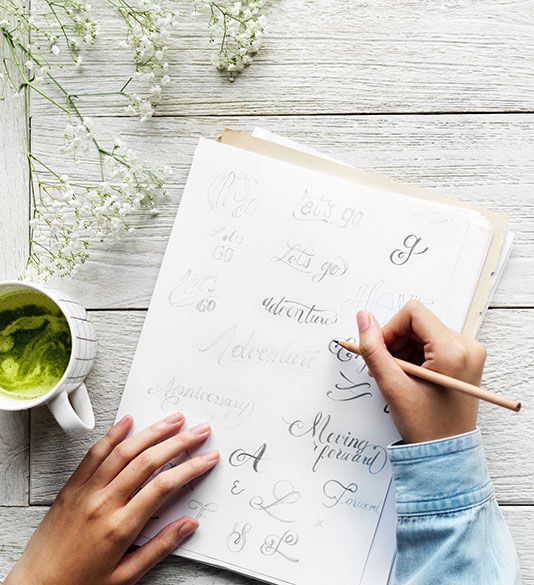 Let's go
Let's go
g
Let's
GO
Let's go
Let's
GO
adventure
Adventure
Anniversary
Moving
forward
A
Forward
S
L